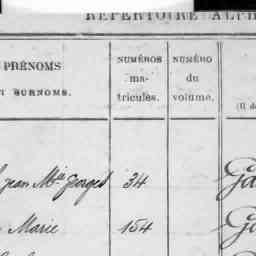 RÉPERTOIRE ALPH
PRÉNOMS
SURNOMS.
NUMÉROS
ma-
tricules.
NUMÉRO
du
volume.
(Il d
jean Mia georges 34
Marie 154